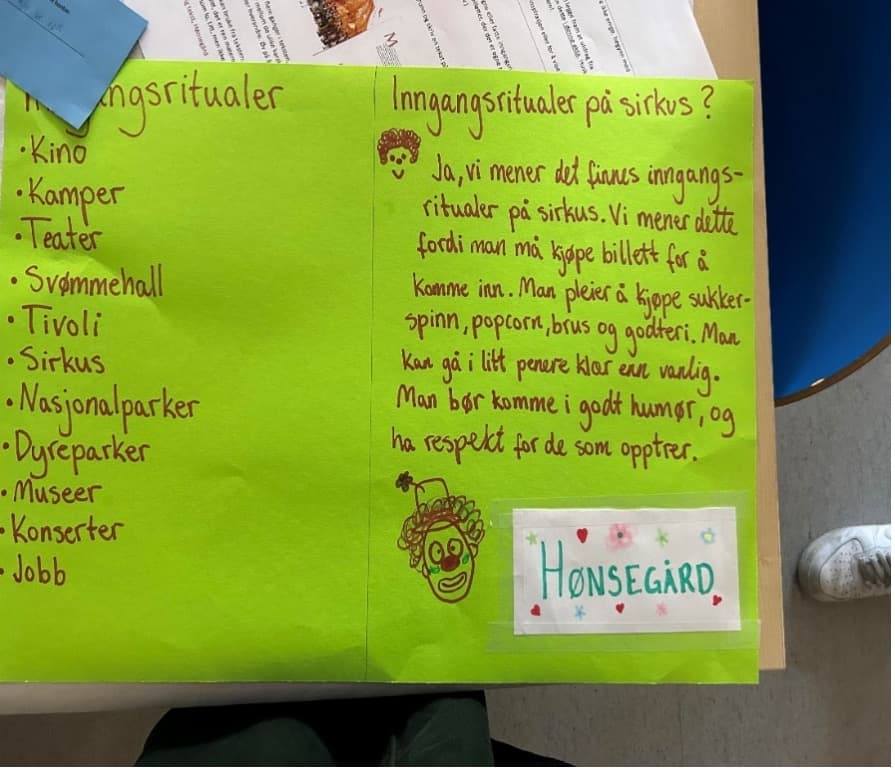 ngsritualer
•Kino
•Kamper
•Teater
•Svømmehall
•Tivoli
•Sirkus
•Nasjonalparker
•Dyreparker
•Museer
•Konserter
•Jobb
Inngangsritualer på sirkus?
Ja, vi mener det finnes inngangs-
ritualer på sirkus. Vi mener dette
fordi man må kjøpe billett for å
komme inn. Man pleier å kjøpe sukker-
spinn, popcorn, brus og godteri. Man
kan gå i litt penere klær enn vanlig.
Man bør komme i godt humør, og
ha respekt for de som opptrer.
HØNSEGÅRD